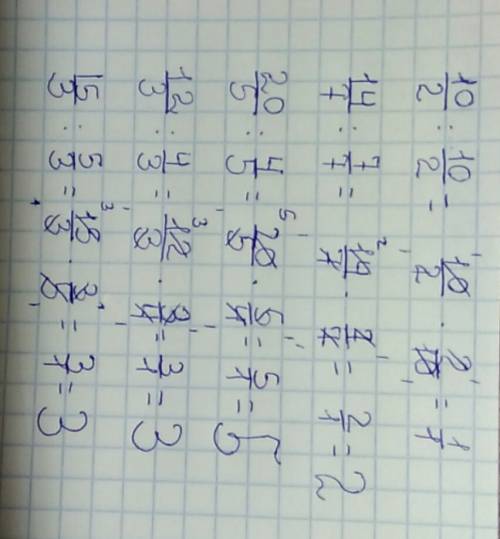 10/2 : 10/2 = 10/2 · 2/10 = 1/1
14/7 : 7/7 = 14/7 · 7/7 = 2/1 = 2
20/5 : 4/5 = 20/5 · 5/4 = 5/1 = 5
12/3 : 4/3 = 12/3 · 3/4 = 3/1 = 3
15/3 : 5/3 = 15/3 · 3/5 = 3/1 = 3